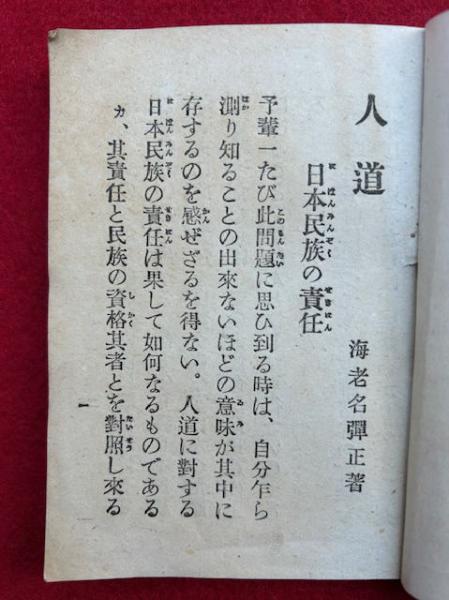 人道
日本民族の責任
海老名彈正著
予輩一たび此問題に思ひ到る時は、自分乍ら
測り知ることの出來ないほどの意味が其中に
存するのを感ぜざるを得ない。人道に對する
日本民族の責任は果して如何なるものである
カ、其責任と民族の資格其者とを對照し來る
一